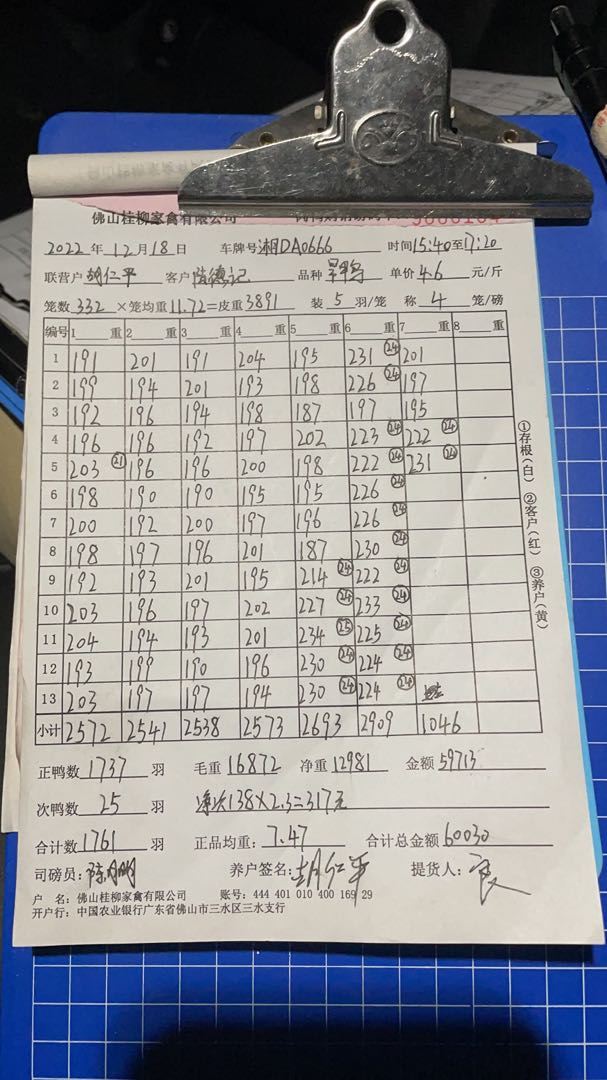 佛山桂柳家禽有限公司
2022年12月18日 车牌号湘DA0666 时间15:40至17:20
联营户 胡仁平 客户 陆德记 品种 单价4.6元/斤
笼数332×笼均重11.72=皮重3891 装5羽/笼 称4笼/磅
编号 1 重 2 重 3 重 4 重 5 重 6 重 7 重 8 重
1 191 201 191 204 195 231 24 201
2 199 194 201 193 198 226 24 197
3 192 196 194 198 187 197 195
4 196 196 192 197 202 223 24 222 24
5 203 21 196 196 200 198 222 24 231 24
6 198 190 190 195 195 226 24
7 200 192 200 197 196 226 24
8 198 197 196 201 187 230 24
9 192 193 201 195 214 24 222 24
10 203 196 197 202 227 24 233 24
11 204 194 193 201 234 25 225 24
12 193 199 190 196 230 24 224 24
13 203 197 197 194 230 24 224 24
小计 2572 2541 2538 2573 2693 2909 1046
①存根(白) ②客户(红) ③养户(黄)
正鸭数1737羽 毛重16872 净重12981 金额59713
次鸭数25羽 净次138×2.3=317元
合计数1761羽 正品均重:7.47 合计总金额60030
司磅员:陈 养户签名:胡仁平 提货人:
户 名:佛山桂柳家禽有限公司 账号:444 401 010 400 169 29
开户行:中国农业银行广东省佛山市三水区三水支行